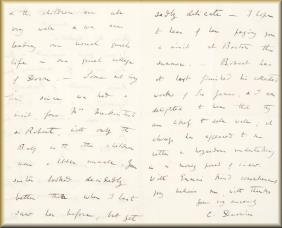 & the children are all
very well & we are
leading our usual quiet
life in our quiet village
of Down — Some
time since we had a
visit from Mrs
& Roberta, with only the
Baby as the other children
were a little
sister looked decidedly
better than when I last
saw her before, but yet
sadly delicate — I hope
to hear of her paying you
a visit at Boston this
summer. — Robert has
at last finished his
works of his
delighted to hear that they
are likely to sell well; it
always has appeared to me
rather a hazardous undertaking
in a money point of view.
With Emma's kind remembrances
pray believe me with thanks
yours very sincerely
C. Darwin